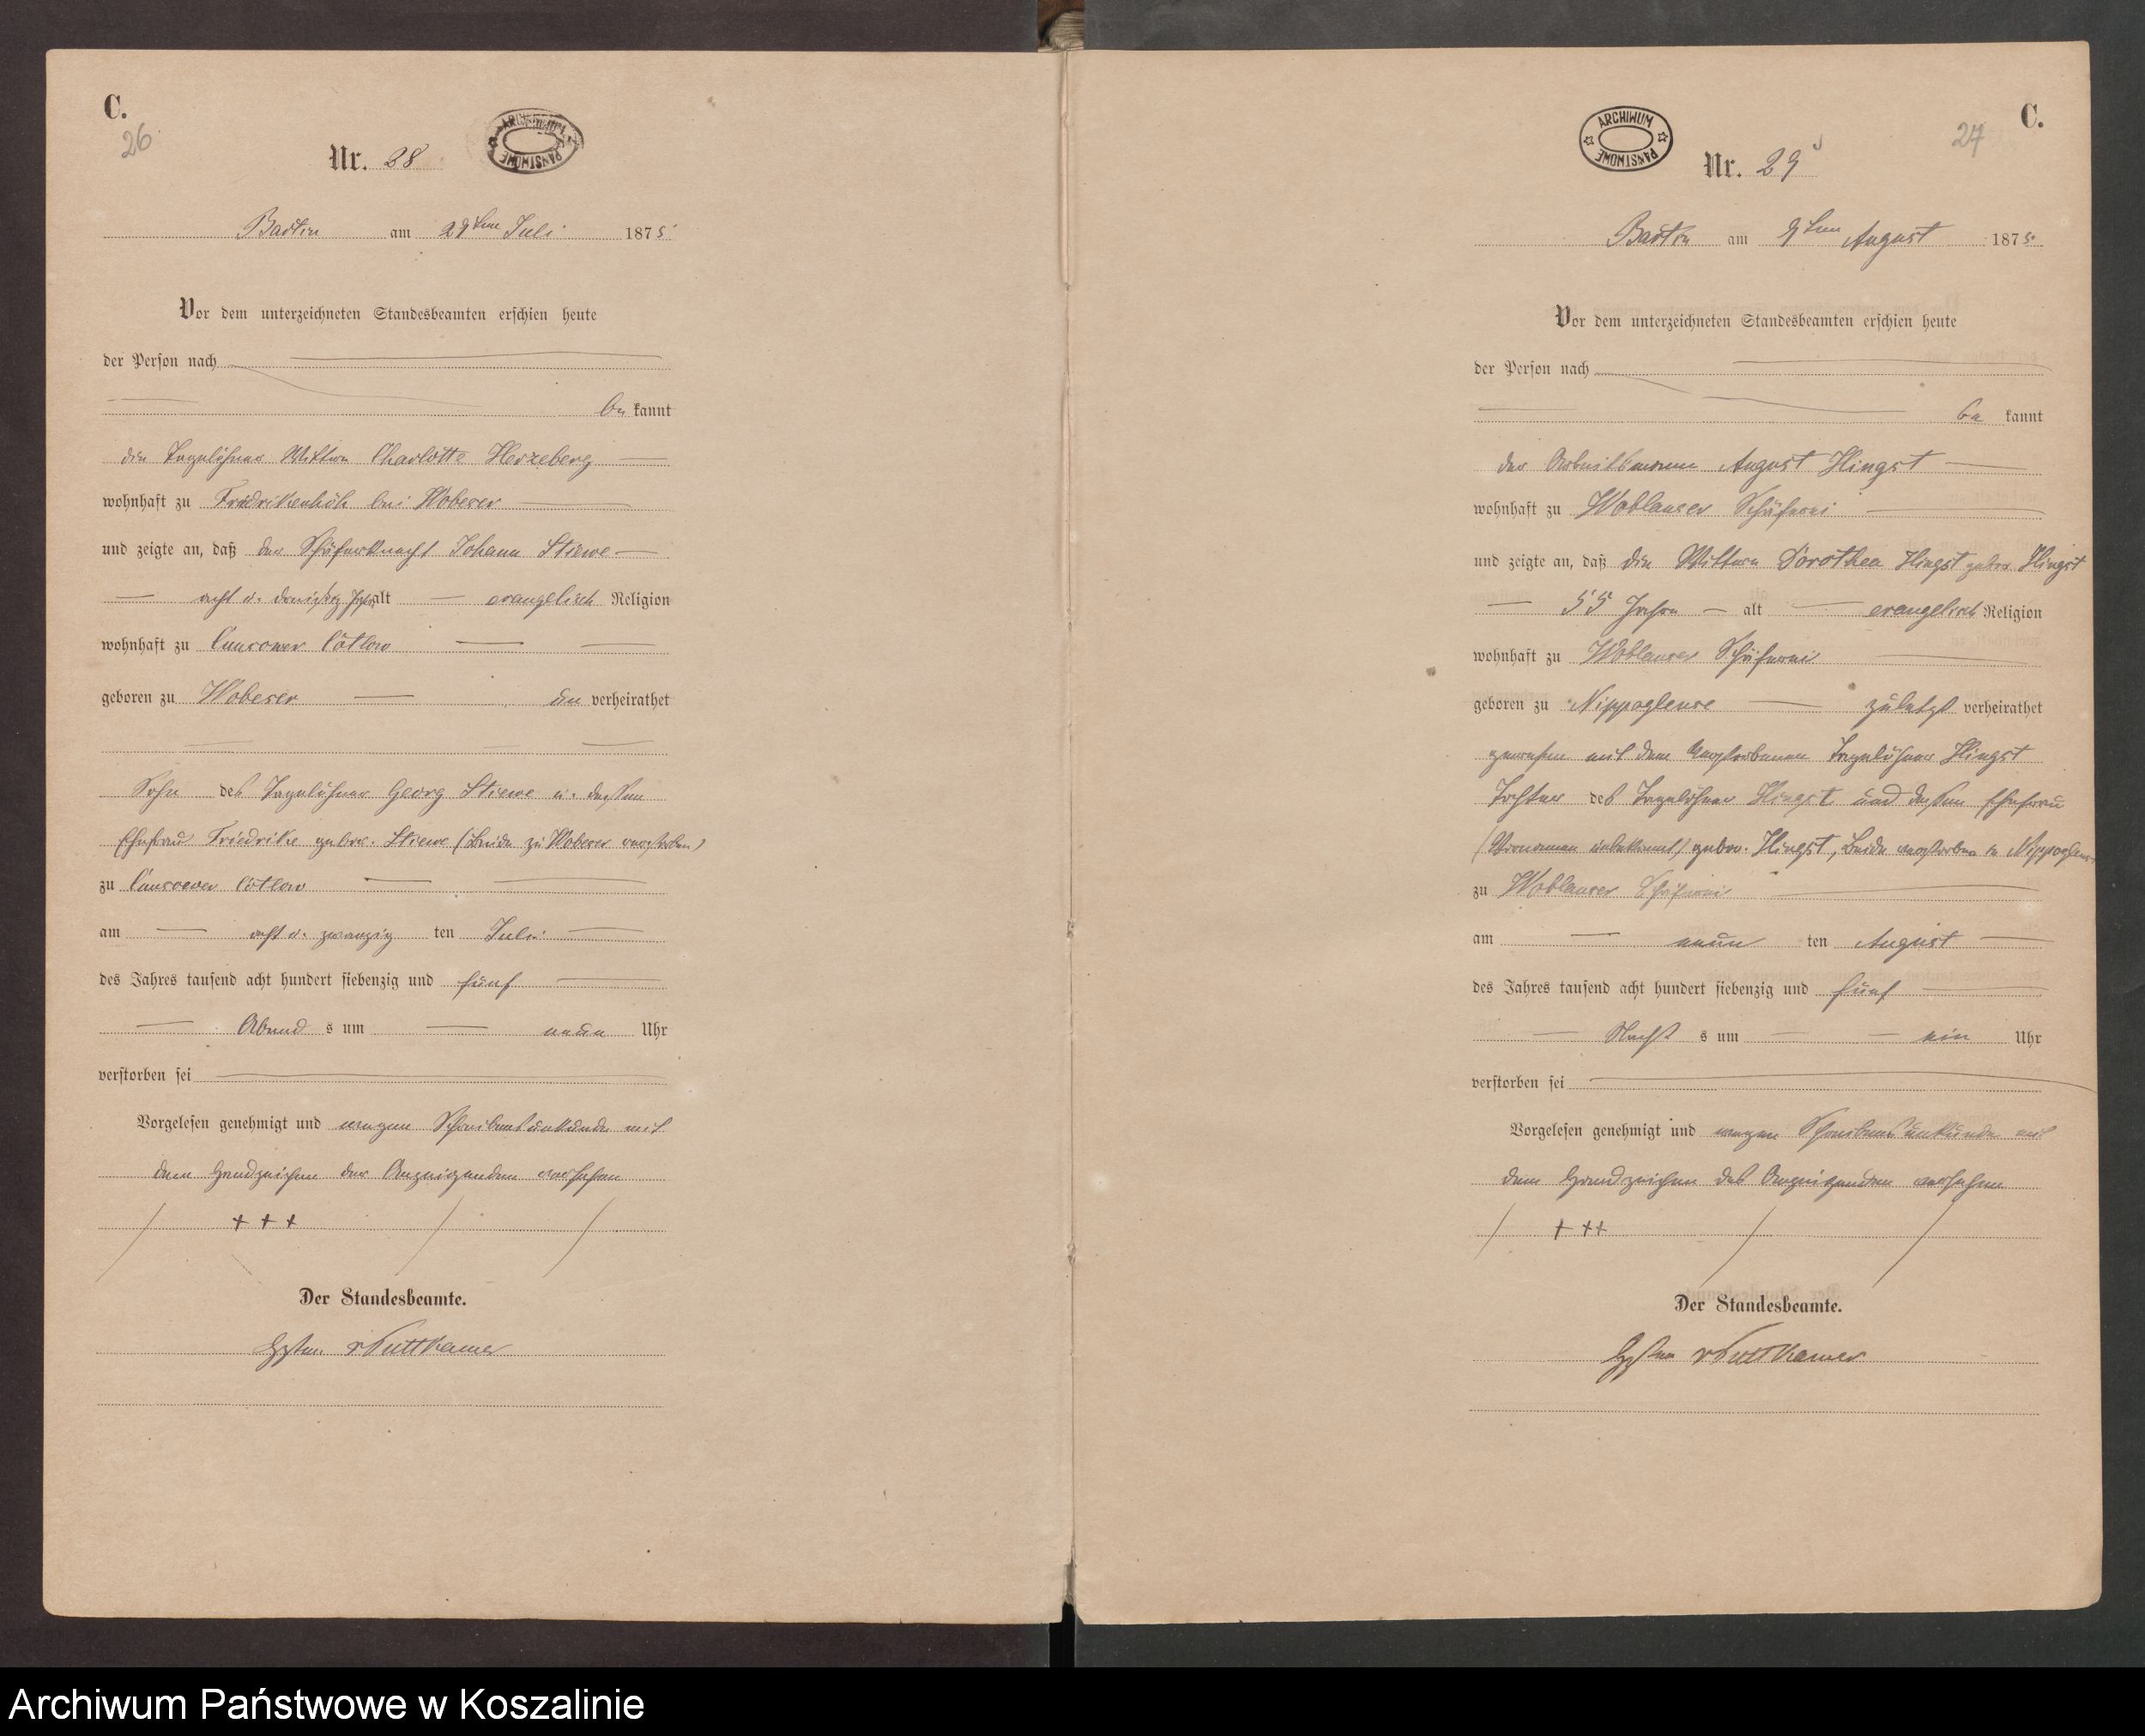 C.
26
ARCHIWUM PAŃSTWOWE
Nr. 28
Bartin am 29ten Juli 1875
Vor dem unterzeichneten Standesbeamten erschien heute
der Person nach
be kannt
die Tagelöhner Wittwe Charlotte Herzeberg
wohnhaft zu Friedrikenhöh bei Wobeser
und zeigte an, daß der Schäferknecht Johann Stiewe
acht u. dreißig Jahr alt evangelisch Religion
wohnhaft zu
geboren zu Wobeser un verheirathet
Sohn des Tagelöhner Georg Stiewe u. dessen
Ehefrau Friedrike gebor. Stiewe (Beide zu Wobeser verstorben)
zu
am acht u. zwanzig ten Juli
des Jahres tausend acht hundert siebenzig und fünf
Abend s um neun Uhr
verstorben sei
Vorgelesen genehmigt und wegen Schreibensunkunde mit
dem Handzeichen der Anzeigenden versehen
+ + +
Der Standesbeamte.
v Puttkamer
C.
27
ARCHIWUM PAŃSTWOWE
Nr. 29
Bartin am 9ten August 1875
Vor dem unterzeichneten Standesbeamten erschien heute
der Person nach
be kannt
der Arbeitsmann August Hingst
wohnhaft zu Woblanser Schäferei
und zeigte an, daß die Wittwe Dorothea Hingst gebor. Hingst
55 Jahre alt evangelisch Religion
wohnhaft zu Woblanser Schäferei
geboren zu Nippoglense zuletzt verheirathet
gewesen mit dem verstorbenen Tagelöhner Hingst
Tochter des Tagelöhner Hingst und dessen Ehefrau
(Vornamen unbekannt) gebor. Hingst, Beide verstorben in Nippoglense
zu Woblanser Schäferei
am neun ten August
des Jahres tausend acht hundert siebenzig und fünf
Nacht s um ein Uhr
verstorben sei
Vorgelesen genehmigt und wegen Schreibensunkunde mit
dem Handzeichen des Anzeigenden versehen
+ + +
Der Standesbeamte.
v Puttkamer
Archiwum Państwowe w Koszalinie